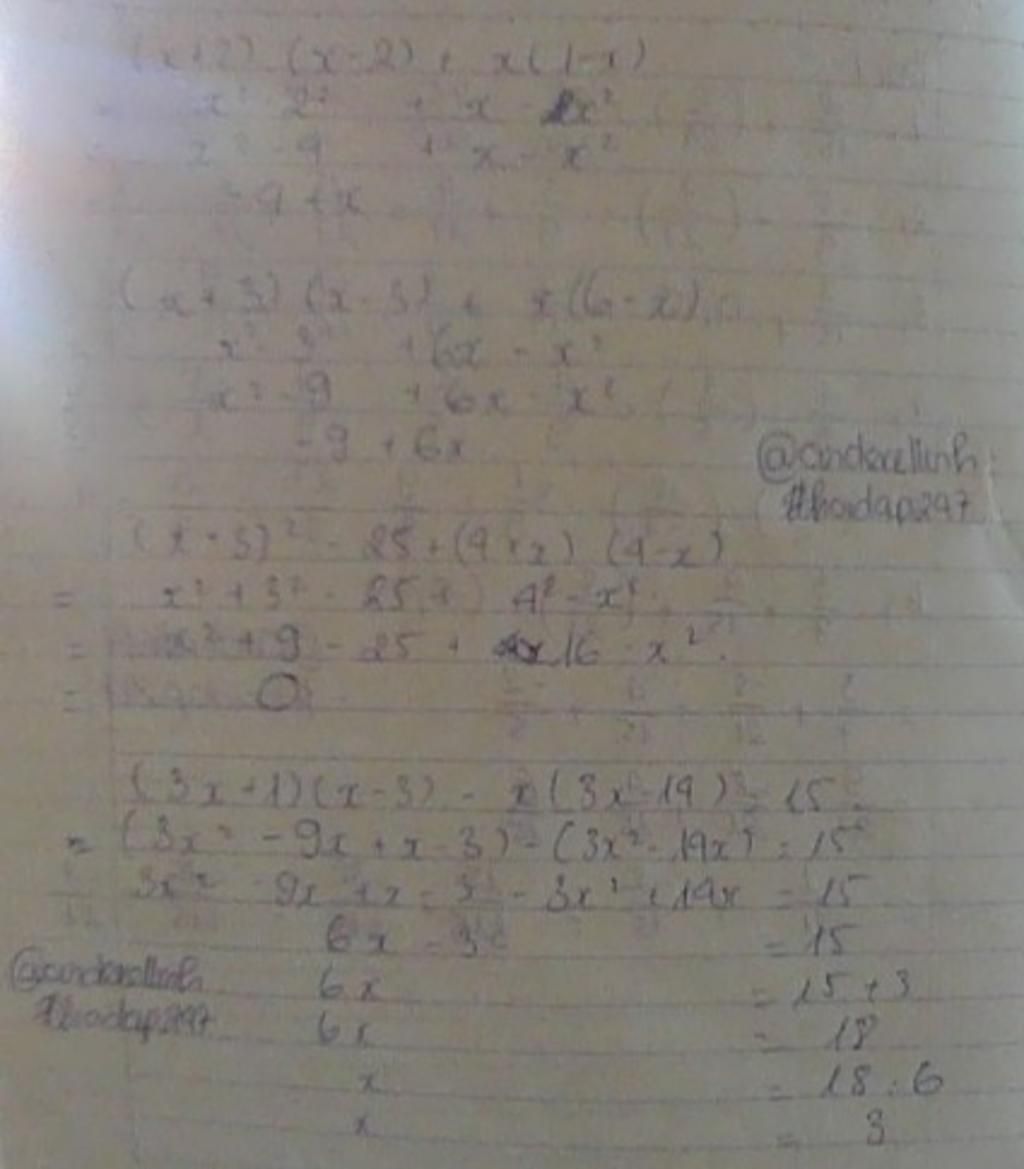 (x+2) (x-2) + x(1-x)
= x² 2² + x - x²
= x² - 4 + x - x²
= -4 + x
(x+3) (x-3) + x(6-x)
x² 3² + 6x - x²
x² - 9 + 6x - x²
-9 + 6x
@cinderellinh
#hoidap247
(x-3)² - 25 + (4+x) (4-x)
= x² + 3² - 25 + 4² - x²
= x² + 9 - 25 + 16 - x².
= 0
(3x+1)(x-3) - x(3x-19) = 15
= (3x² - 9x + x - 3) - (3x² - 19x) = 15
3x² - 9x + x - 3 - 3x² + 19x = 15
6x - 3 = 15
@cinderellinh
#hoidap247
6x = 15 + 3
6x = 18
x = 18 : 6
x = 3